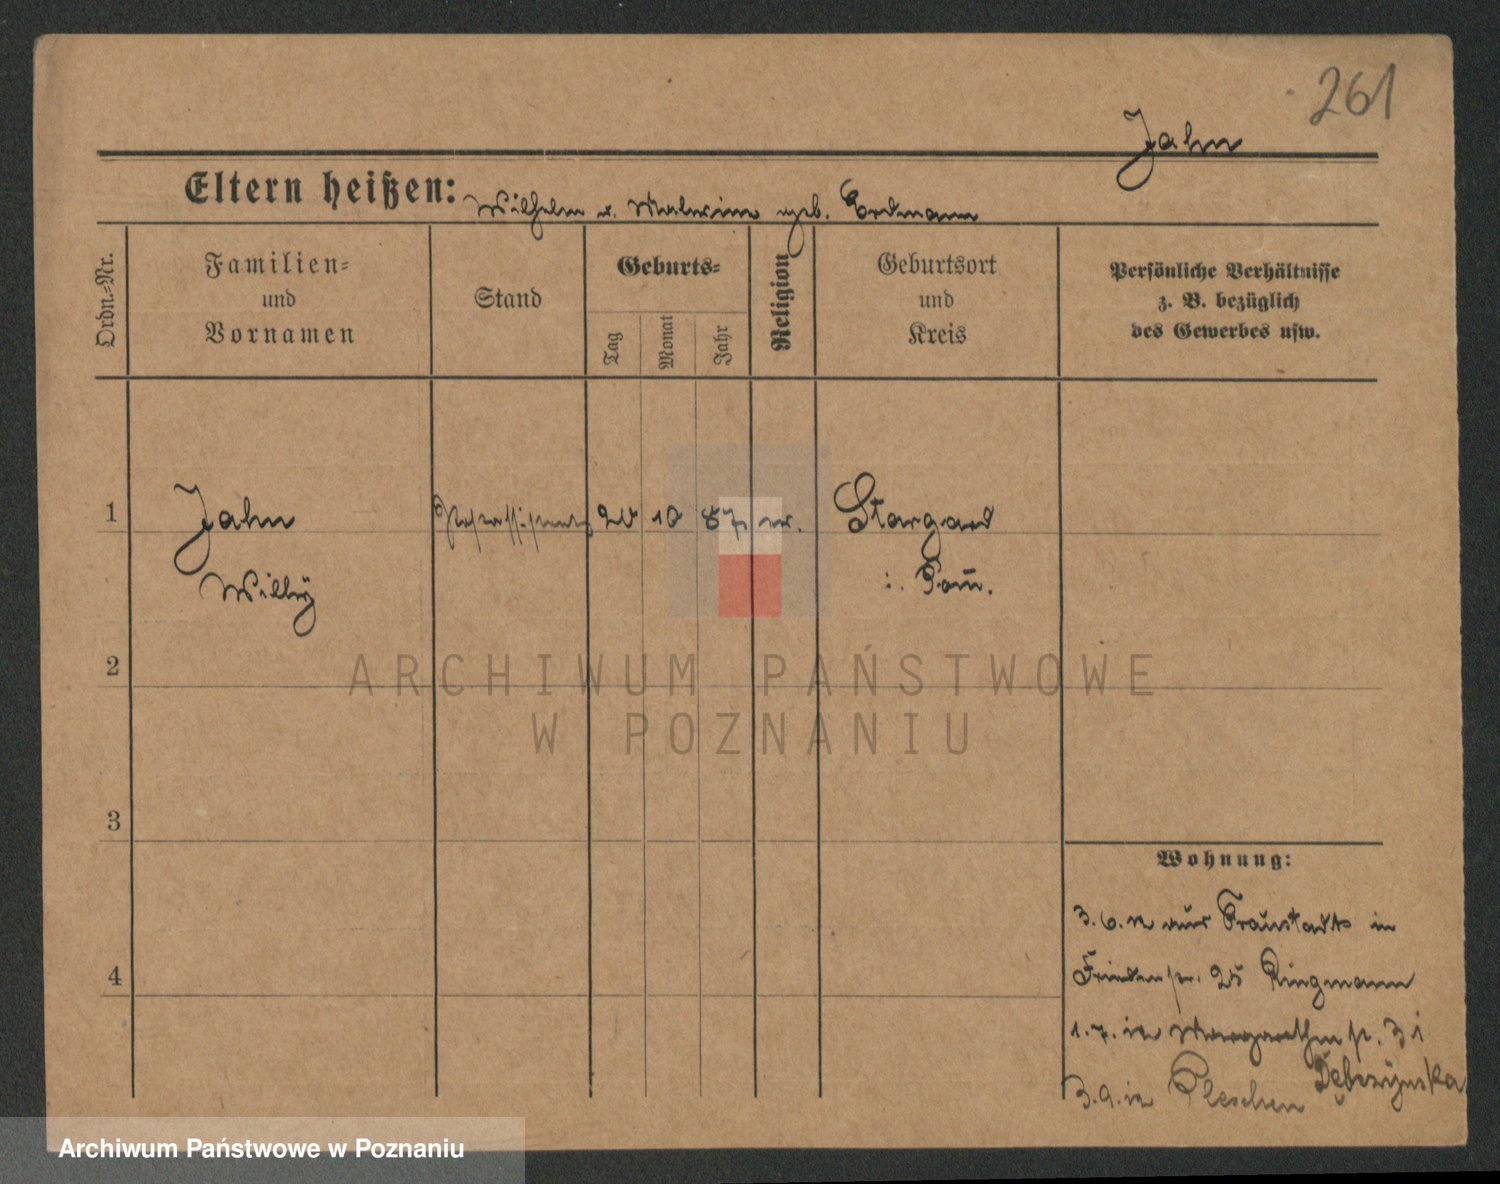 261
Jahn
Eltern heißen: Wilhelm u. Malwine geb. Erdmann
Ordn.-Nr.
Familien-
und
Vornamen
Stand
Geburts-
Tag
Monat
Jahr
Religion
Geburtsort
und
Kreis
Persönliche Verhältnisse
z. B. bezüglich
des Gewerbes usw.
1
Jahn
Willy
20 10 87 ev.
Stargard
i. Pom.
2
3
4
Wohnung:
3.6.12 aus Fraustadt in
Friedenstr. 25 Ringmann
1.7.12 Margarethenstr. 31
Dębczyńska
3.9.12 Pleschen
ARCHIWUM PAŃSTWOWE
W POZNANIU
Archiwum Państwowe w Poznaniu